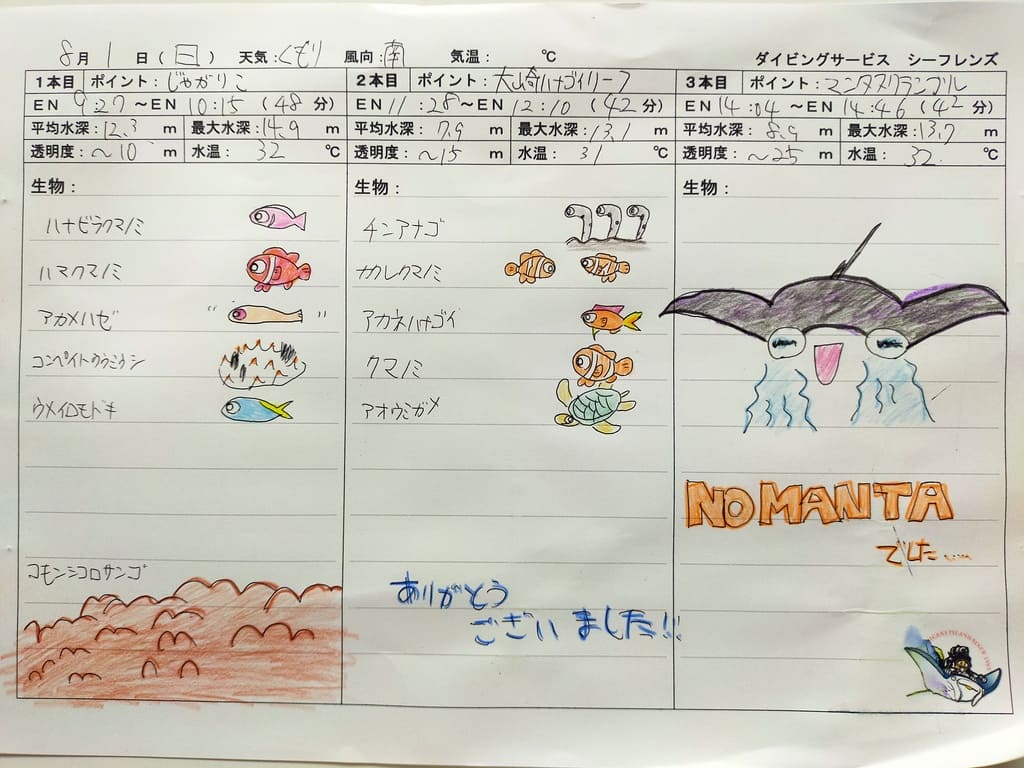 8月 1 日(日) 天気:くもり 風向:南 気温: ℃ ダイビングサービス シーフレンズ
1本目 ポイント:じゃがりこ
EN 9:27 ~EN 10:15 (48 分)
平均水深:12.3 m 最大水深:14.9 m
透明度:~10 m 水温: 32 ℃
生物:
ハナビラクマノミ
ハマクマノミ
アカメハゼ
コンペイトウウミウシ
ウメイロモドキ
コモンシコロサンゴ
2本目 ポイント:大崎ハナゴイリーフ
EN 11:28 ~EN 12:10 (42 分)
平均水深:7.9 m 最大水深:13.1 m
透明度:~15 m 水温: 31 ℃
生物:
チンアナゴ
カクレクマノミ
アカネハナゴイ
クマノミ
アオウミガメ
ありがとう
ございました!!
3本目 ポイント:マンタスクランブル
EN 14:04 ~EN 14:46 (42 分)
平均水深:8.9 m 最大水深:13.7 m
透明度:~25 m 水温: 32 ℃
生物:
NO MANTA
でした…